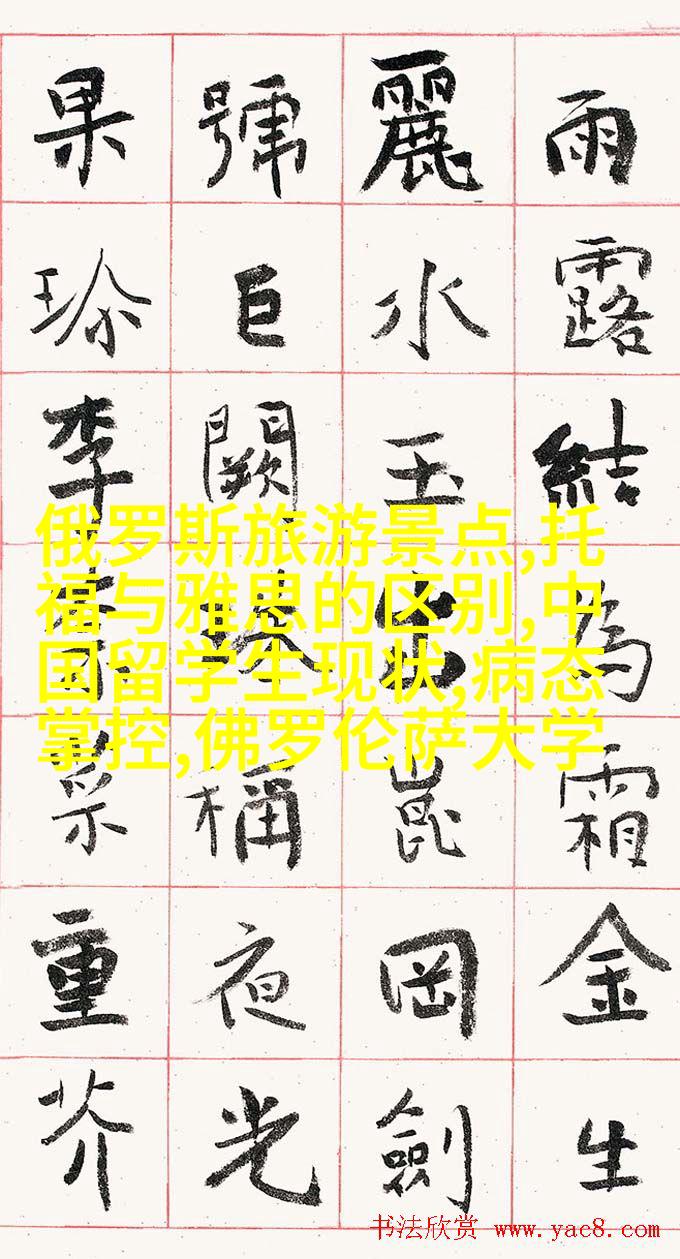 雨露結為霜金生
麗水玉出崑岡劍
號巨闕珠稱夜光
果珎李柰菜重芥
俄罗斯旅游景点,托
福与雅思的区别,中
国留学生现状,病态
掌控,佛罗伦萨大学
书法欣赏 www.yac8.com